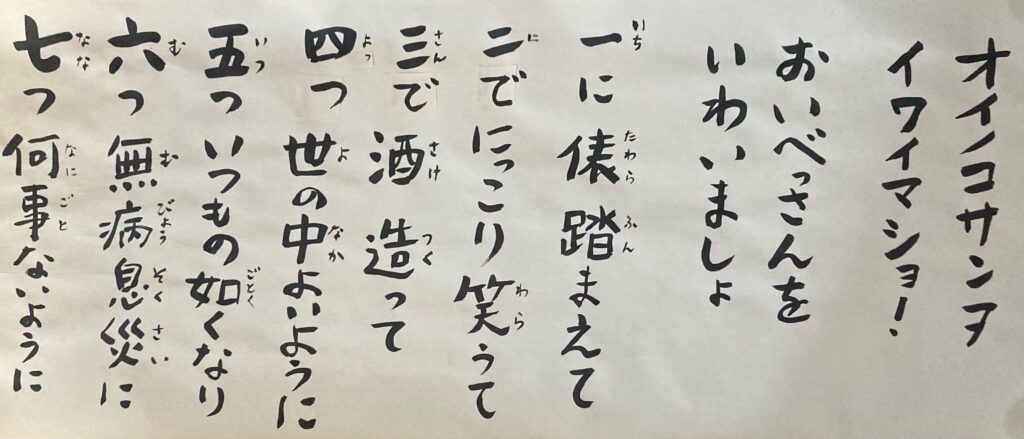 オイノコサンヲ
イワイマショー！
おいべっさんを
いわいましょ
一に 俵 踏まえて
二で にっこり 笑うて
三で 酒 造って
四つ 世の中よいように
五つ いつもの如くなり
六つ 無病息災に
七つ 何事ないように